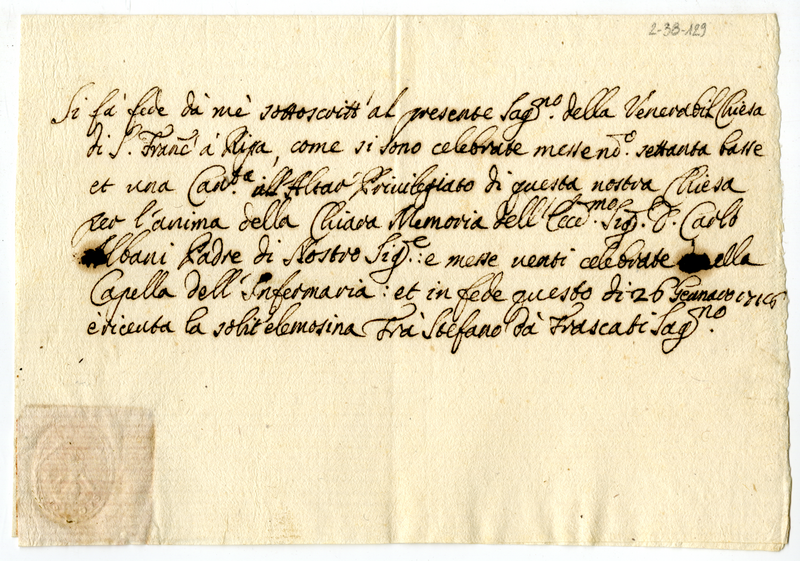 2-38-129
Si fà fede dà mè sottoscritt' al presente Sag.no della Venerabil Chiesa
di S. Franc.o à Ripa, come si sono celebrate messe no. settanta basse
et una Can.ta all'Altar Privilegiato di questa nostra Chiesa
per l'anima della Chiara Memoria dell'Ecc.mo Sig. D. Carlo
Albani Padre di Nostro Sig.e: e messe venti celebrate nella
Capella dell'Infermaria: et in fede questo di 26 Gennaro 1716
è ricevuta la solit'elemosina Frà Stefano dà Frascati Sag.no